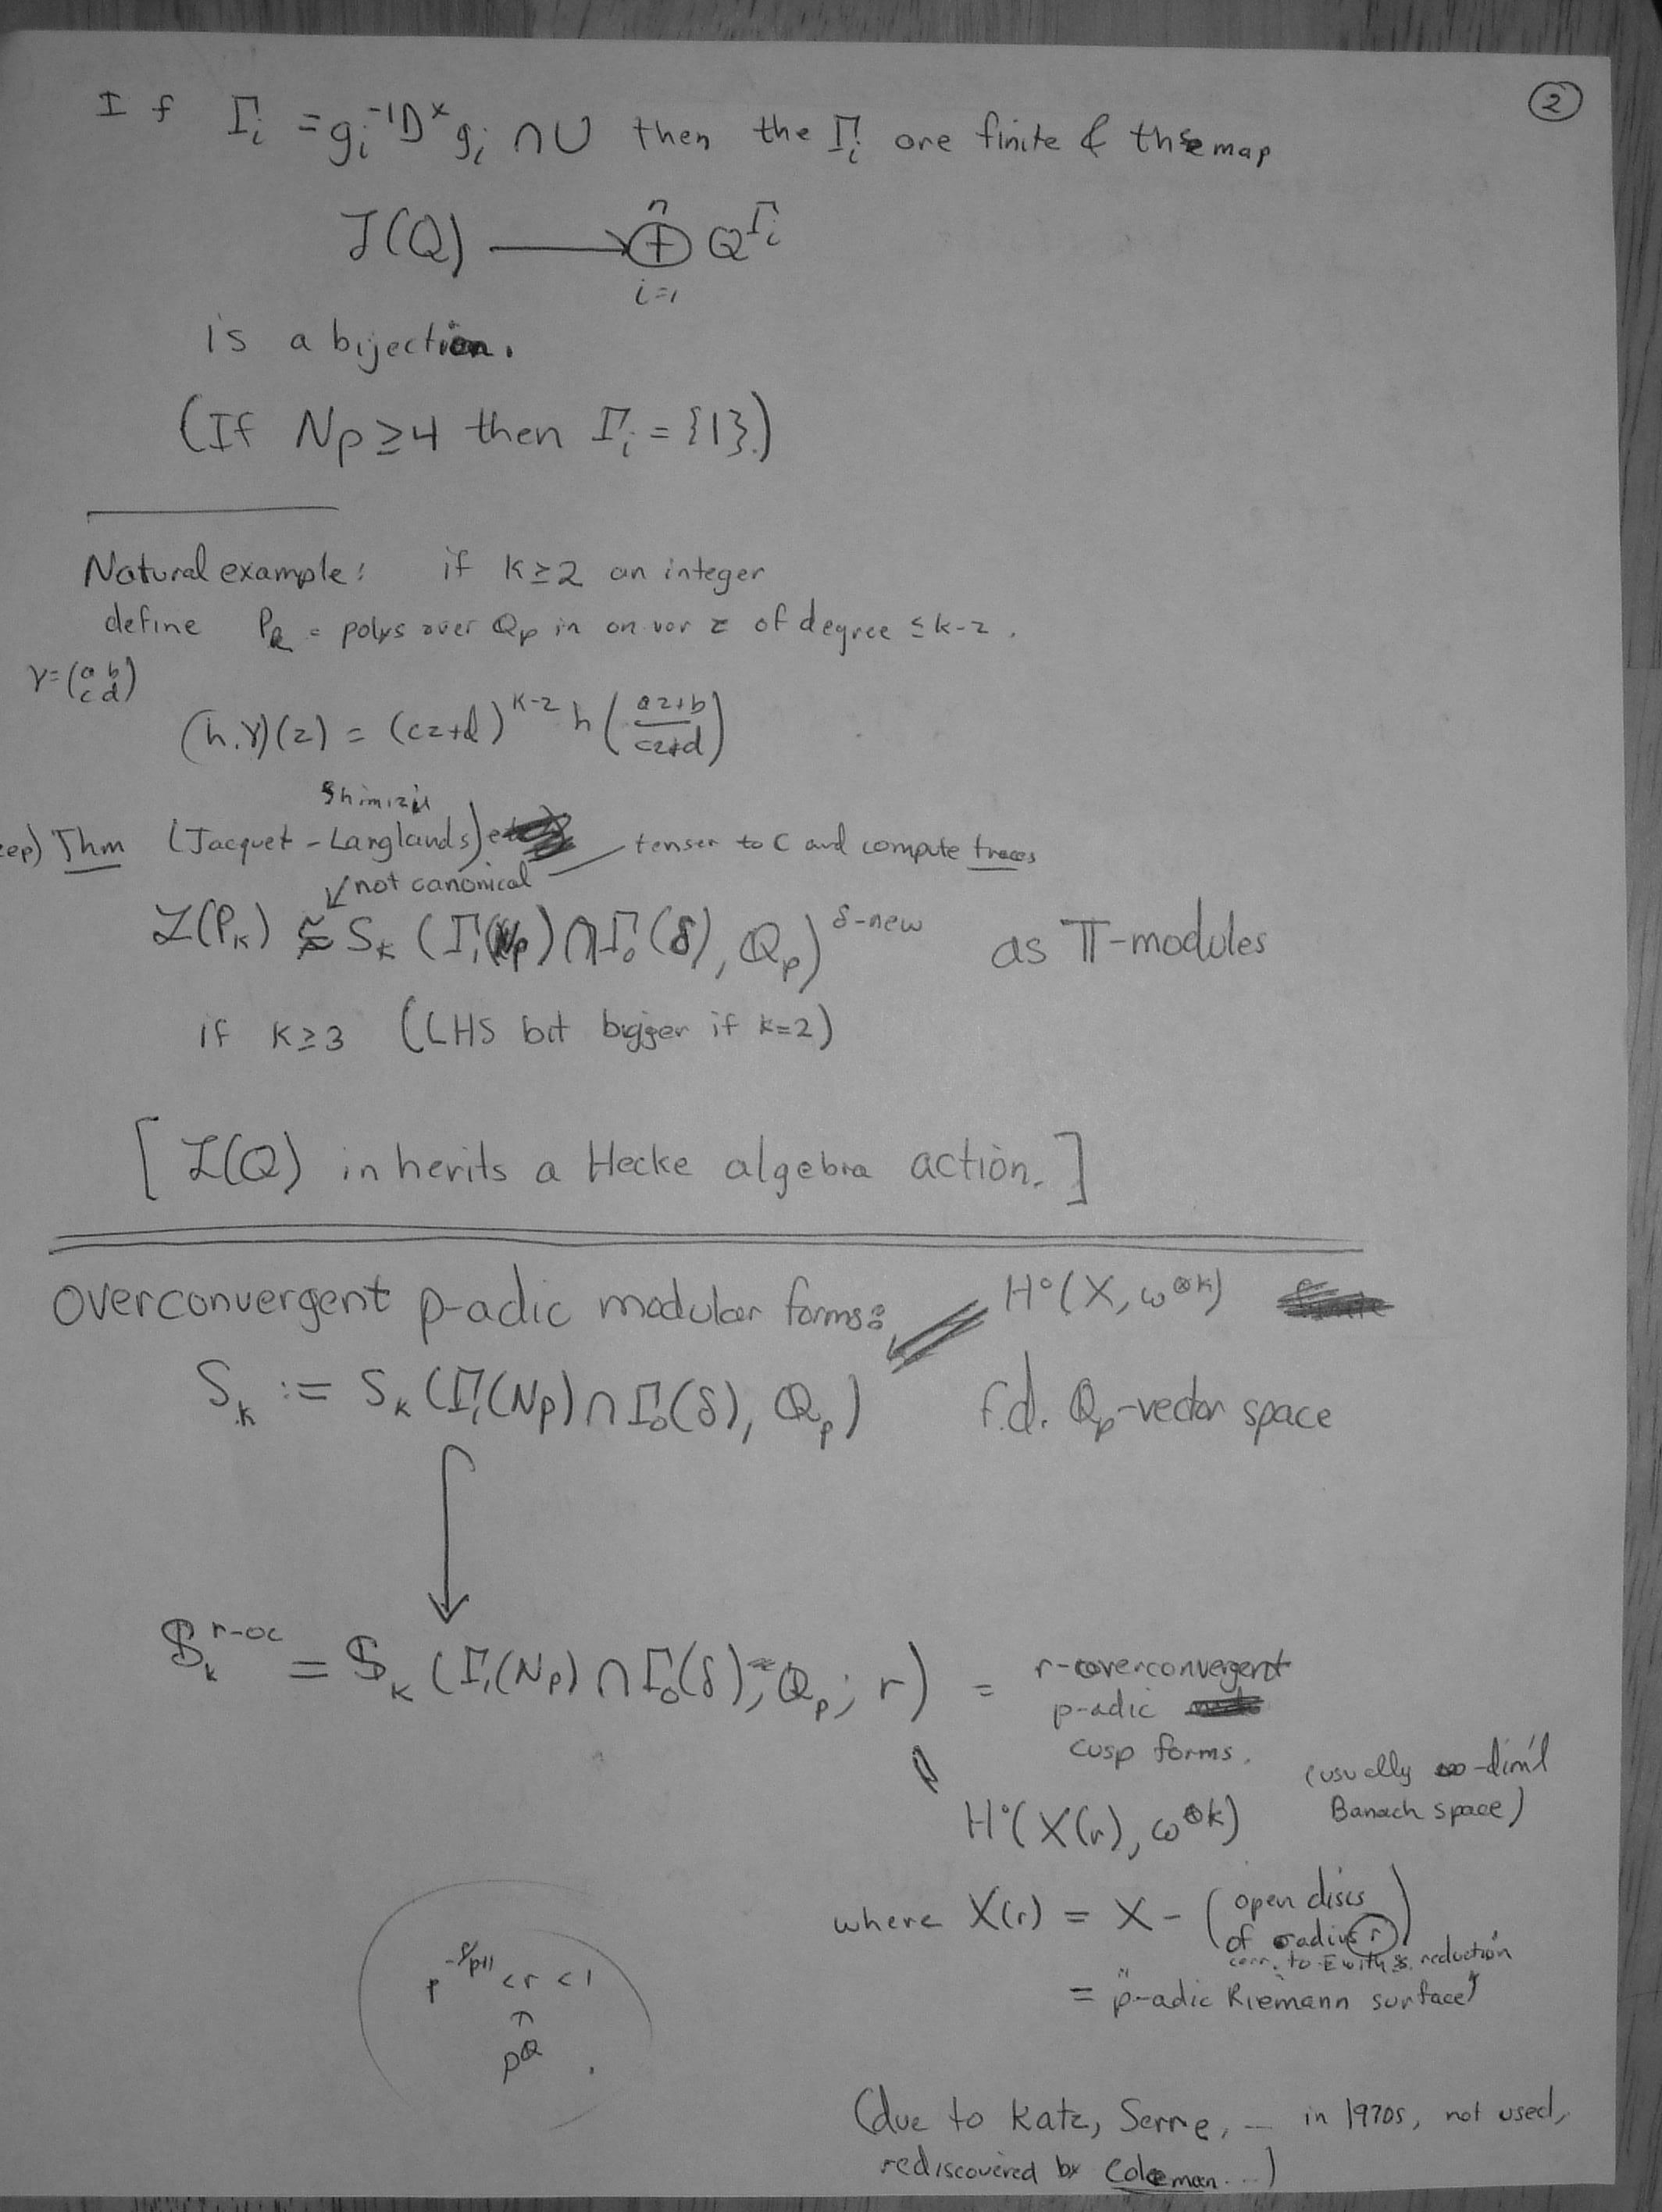 ②
If Γi = gi⁻¹D^x gi ∩ U then the Γi are finite & the map
L(Q) ⟶ ⊕ Q^Γi
n
i=1
is a bijection.
(If Np ≥ 4 then Γi = {1}.)
Natural example: if k ≥ 2 an integer
define Pk = polys over Qp in on var z of degree ≤ k-2.
γ = (a b
c d)
(h.γ)(z) = (cz+d)^{k-2} h((az+b)/(cz+d))
Shimizu
eep) Thm (Jacquet - Langlands) tensor to C and compute traces
↙ not canonical
L(Pk) ≅ Sk (Γ1(Np) ∩ Γ0(δ), Qp)^{δ-new} as T-modules
if k ≥ 3 (LHS bit bigger if k=2)
[ L(Q) inherits a Hecke algebra action. ]
Overconvergent p-adic modular forms: H°(X, ω^{⊗k})
Sk := Sk (Γ1(Np) ∩ Γ0(δ), Qp) f.d. Qp-vector space
𝕊k^{r-oc} = 𝕊k (Γ1(Np) ∩ Γ0(δ), Qp; r) = r-overconvergent
p-adic
cusp forms.
(usually ∞-dim'l
Banach space)
H°(X(r), ω^{⊗k})
where X(r) = X - (open discs
of radius r)
corr. to E with s.s. reduction
= "p-adic Riemann surface"
p^{-p/p+1} < r < 1
↑
p^Q
(due to Katz, Serre, — in 1970s, not used,
rediscovered by Coleman...)